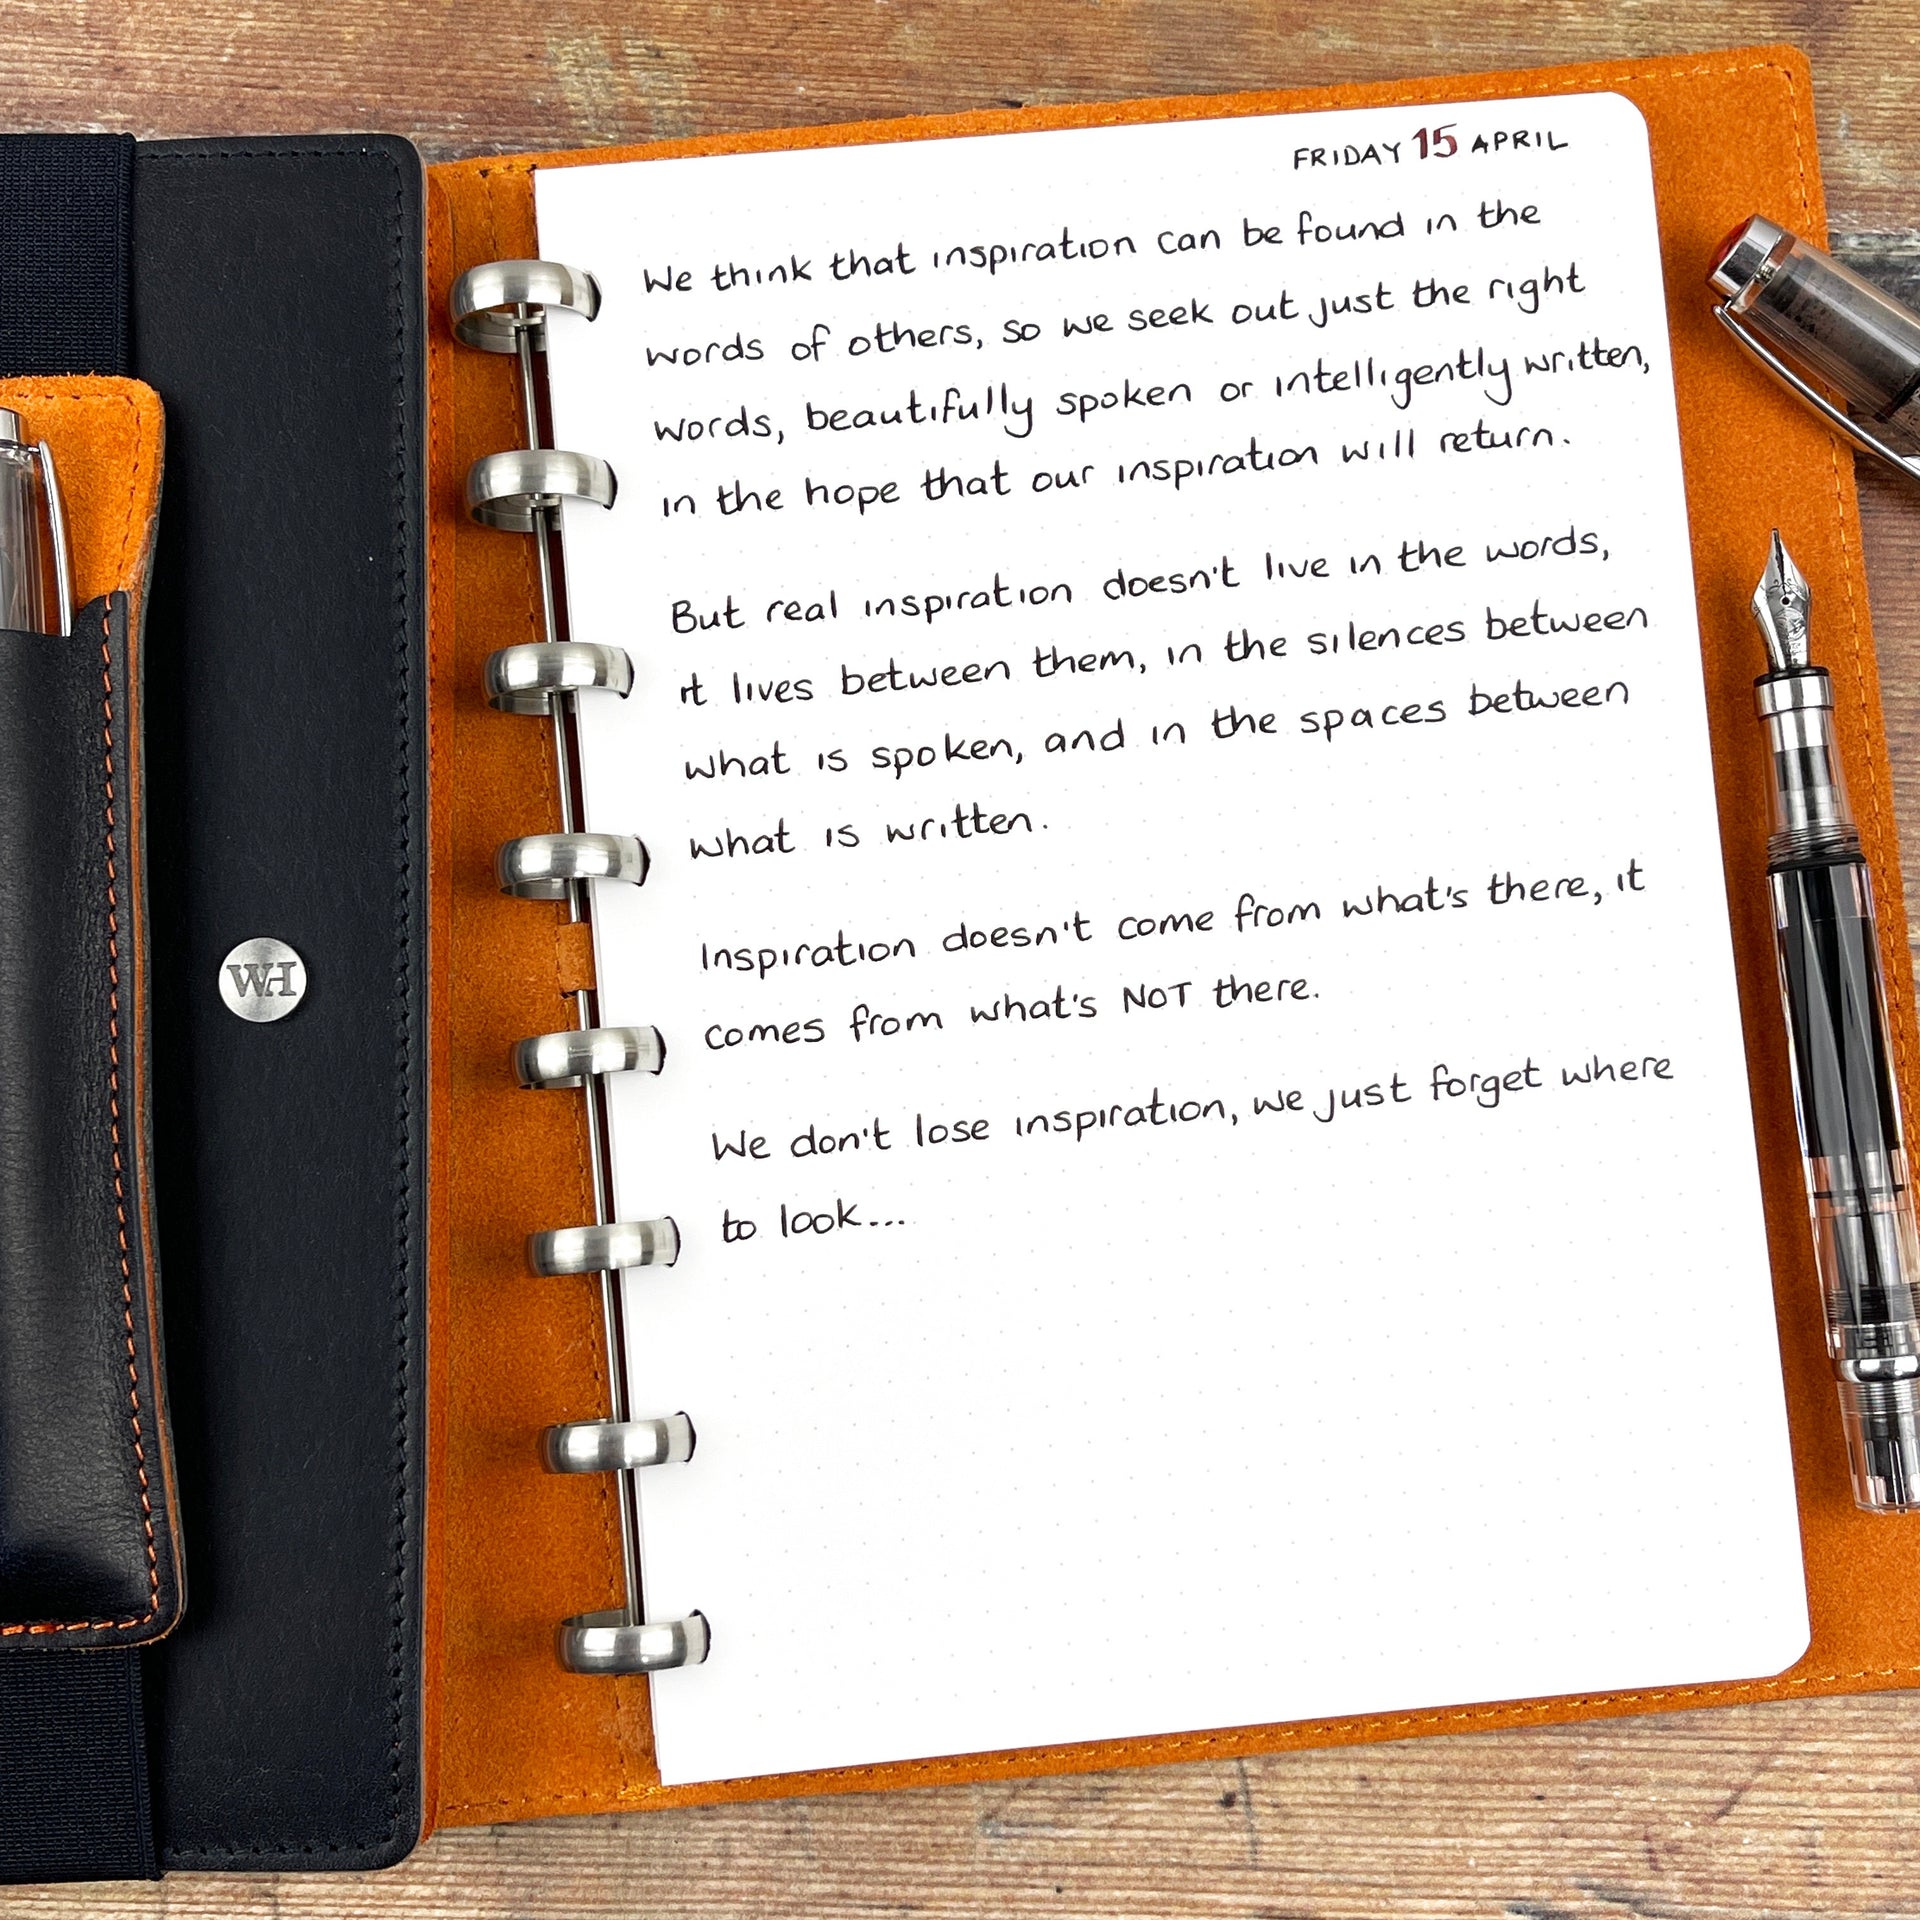 FRIDAY 15 APRIL
We think that inspiration can be found in the
words of others, so we seek out just the right
words, beautifully spoken or intelligently written,
in the hope that our inspiration will return.
But real inspiration doesn't live in the words,
it lives between them, in the silences between
what is spoken, and in the spaces between
what is written.
Inspiration doesn't come from what's there, it
comes from what's NOT there.
We don't lose inspiration, we just forget where
to look...
WH